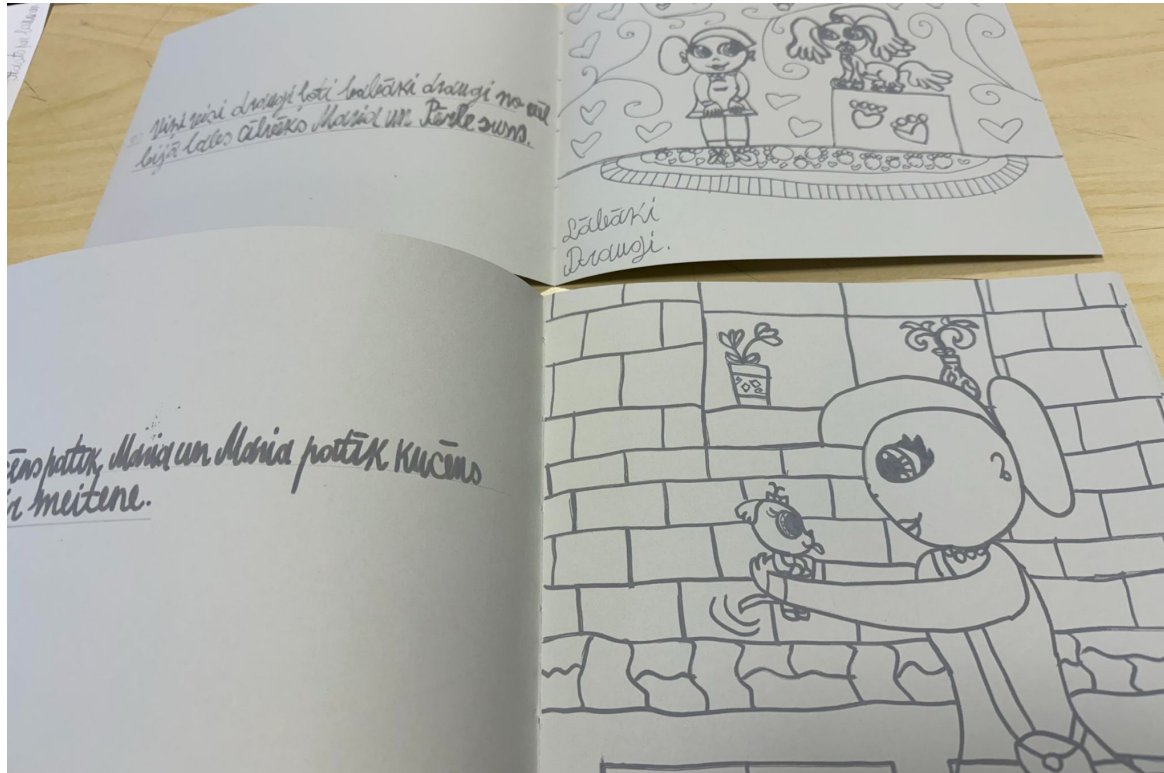 Viņi visi draugi ļoti labāki draugi no
bijā lales cilvēks Maria un Pērle suns.
Lābāki
Draugi.
patīk, Maria un Maria patīk Kučēns
meitene.